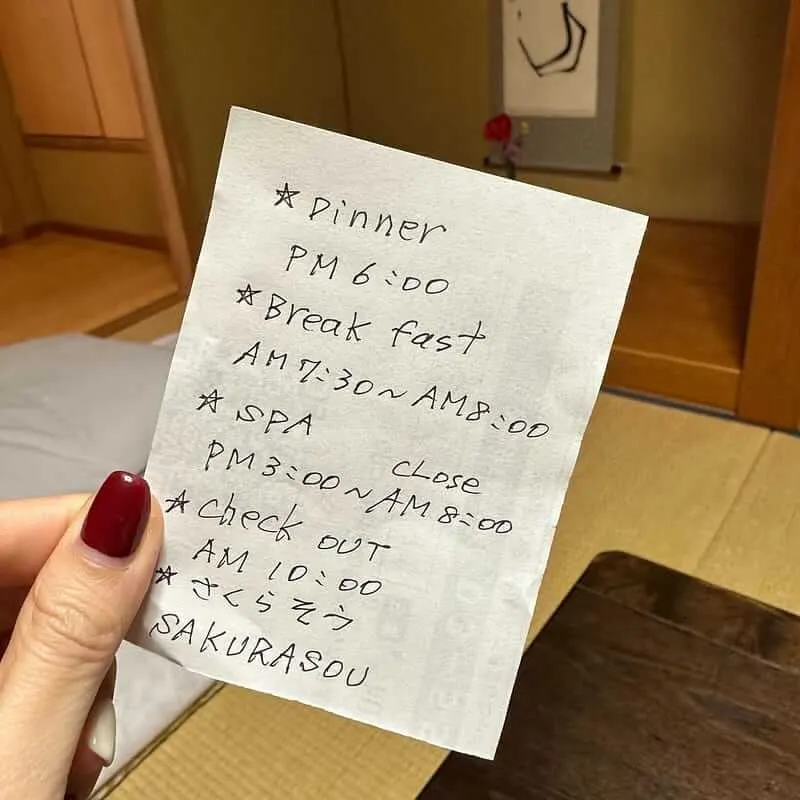 ☆ Dinner
PM 6:00
☆ Break fast
AM 7:30 ~ AM 8:00
☆ SPA
CLOSE
PM 3:00 ~ AM 8:00
☆ Check OUT
AM 10:00
☆ さくらそう
SAKURASOU